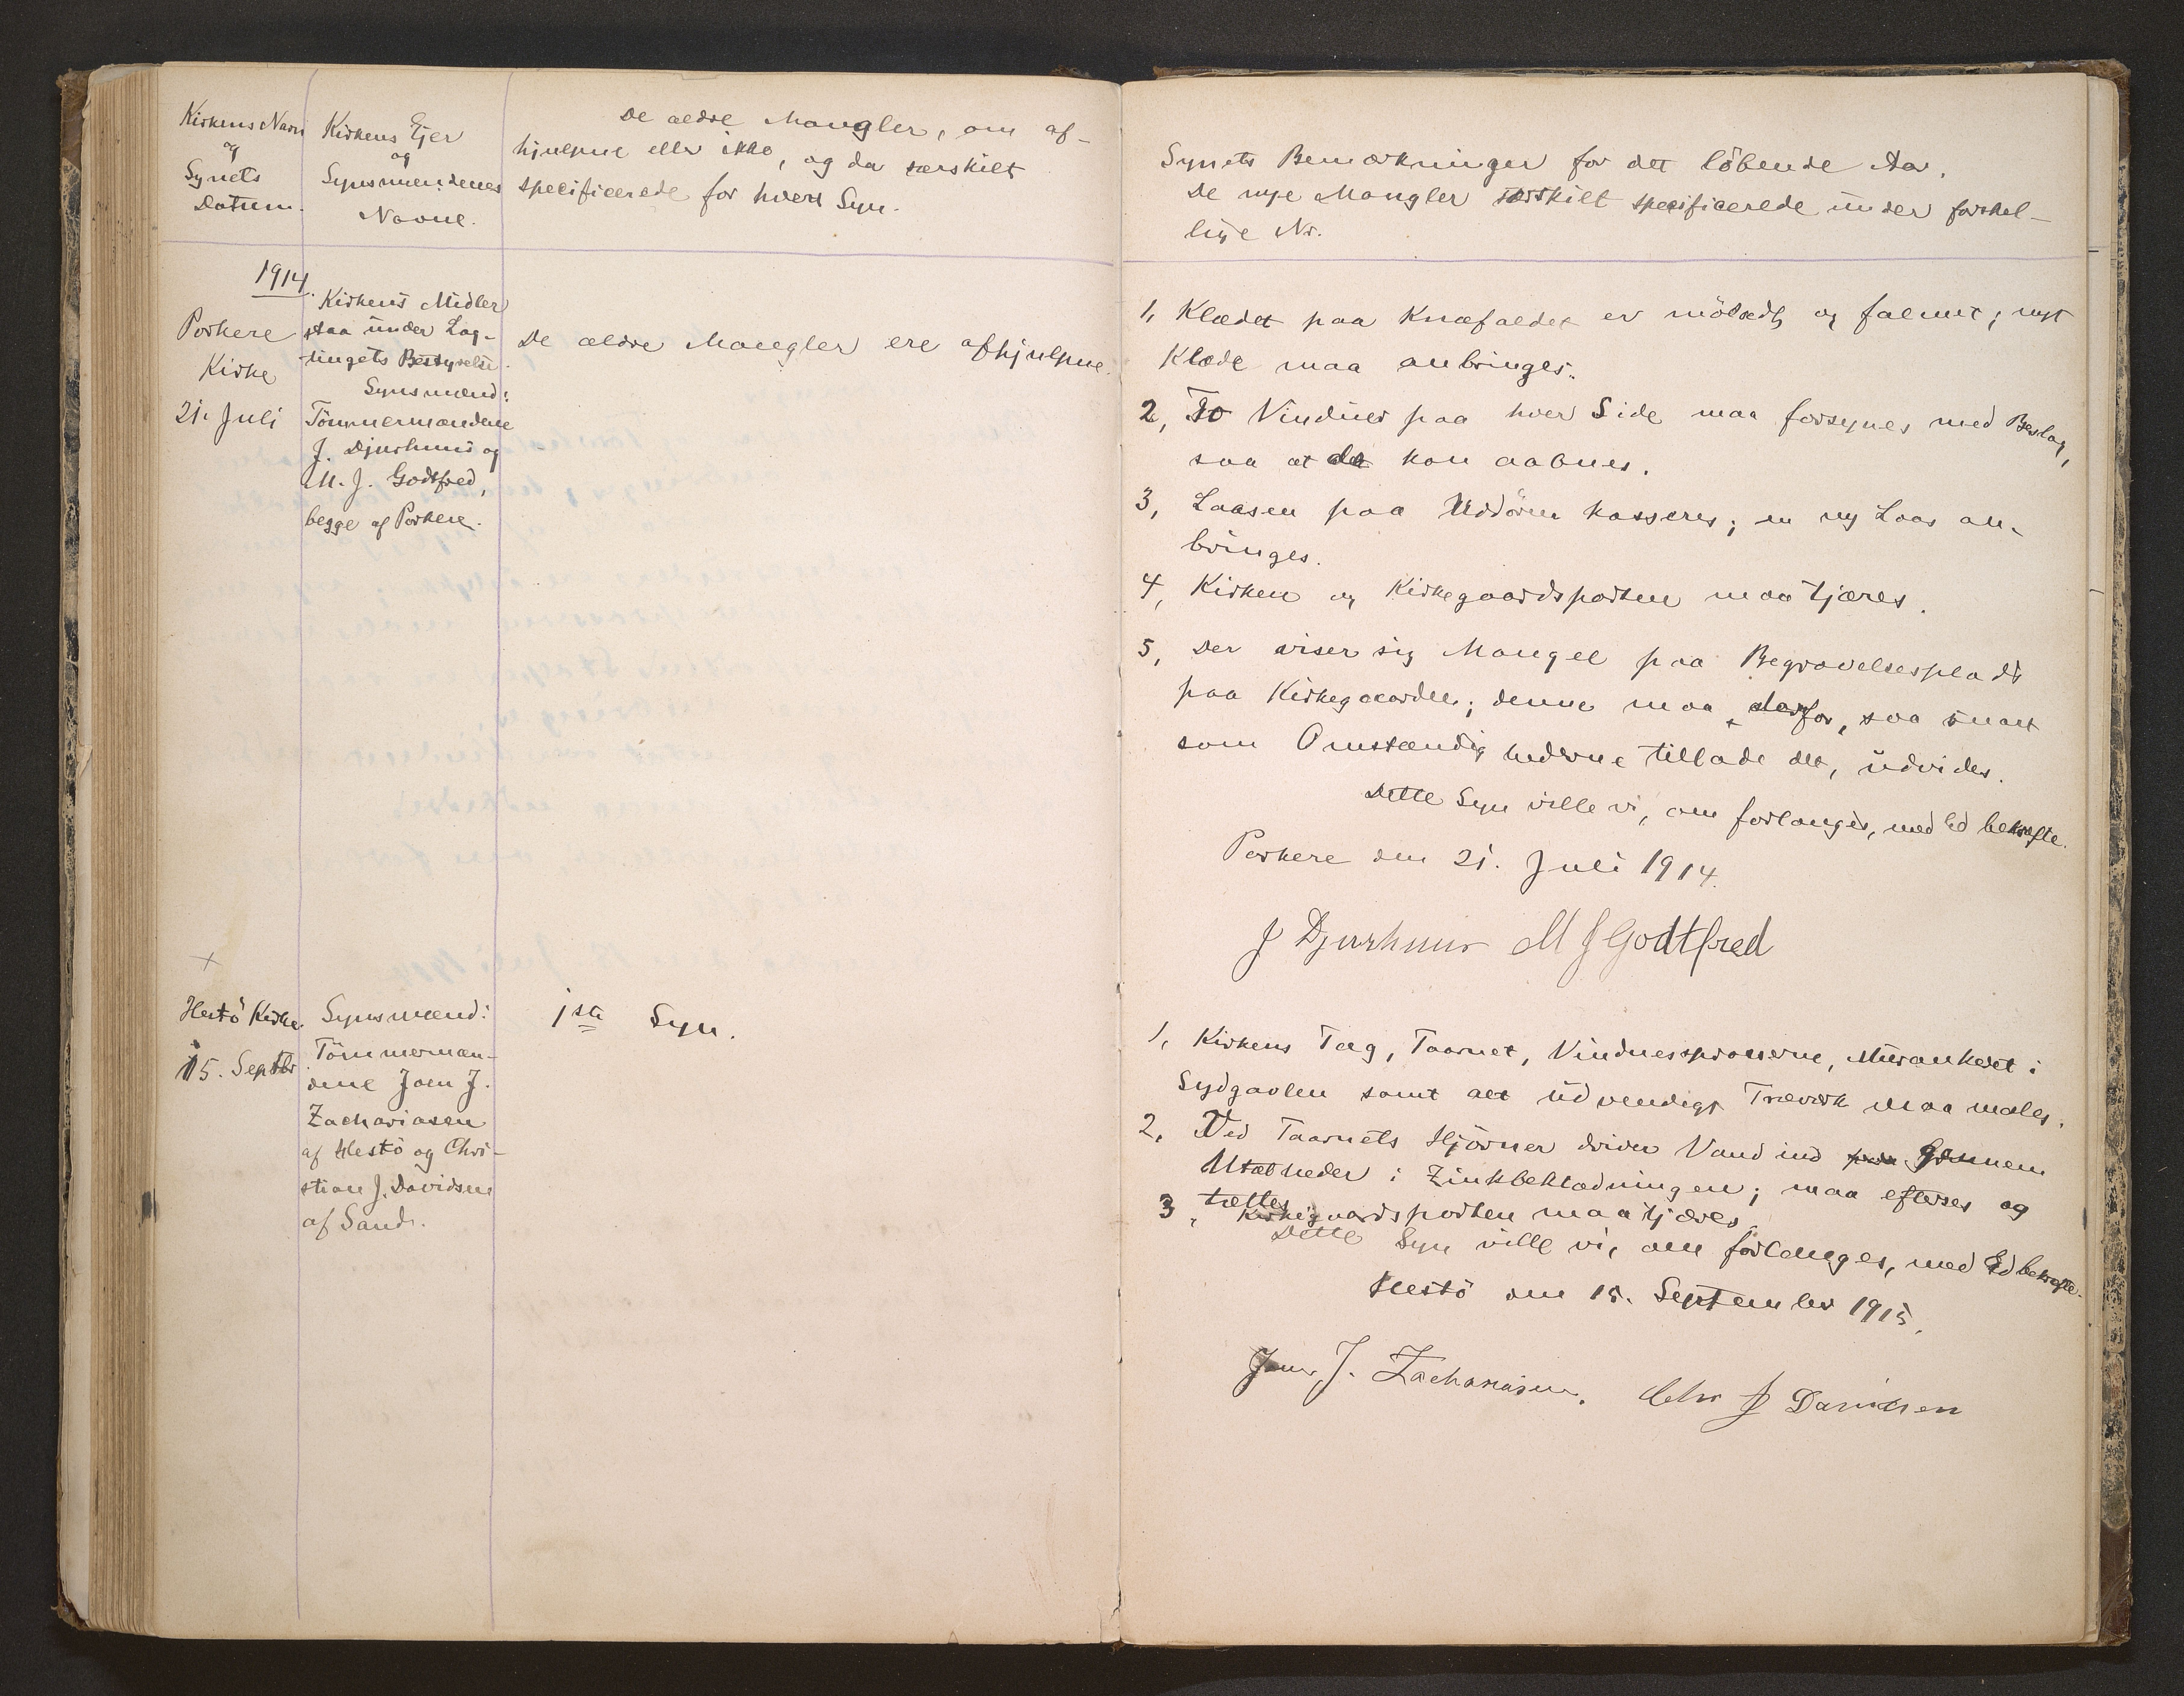 Kirkens Navn
og
Synets
Datum.
Kirkens Ejer
og
Synsmændenes
Navne.
De ældre Mangler, om af-
hjulpne eller ikke, og da særskilt
specificerede for hvert Syn.
1914.
Porkere
Kirke
21. Juli
Kirkens Midler
staa under Lag-
tingets Bestyrelse.
Synsmænd:
Tömmermændene
J. Djurhuus og
M. J. Godtfred,
begge af Porkere.
De ældre Mangler ere afhjulpne.
+
Hestö Kirke
15. Septbr
Synsmænd:
Tömmermæn-
dene Joen J.
Zachariasen
af Hestö og Chri-
stian J. Davidsen
af Sand.
1ste Syn.
Synets Bemærkninger for det löbende Aar.
De nye Mangler særskilt specificerede under forskel-
lige Nr.
1, Klædet paa Knæfaldet er mölædt og falmet; nyt
Klæde maa anbringes.
2, To Vinduer paa hver Side maa forsynes med Beslag,
saa at de kan aabnes.
3, Laasen paa Uddören kasseres; en ny Laas an-
bringes.
4, Kirken og Kirkegaardsporten maa tjæres.
5, Der viser sig Mangel paa Begravelsesplads
paa Kirkegaarden; denne maa derfor, saa snart
som Omstændighederne tillade det, udvides.
Dette Syn ville vi, om forlanges, med Ed bekræfte.
Porkere den 21. Juli 1914.
J Djurhuus M J Godtfred
1, Kirkens Tag, Taarnet, Vinduessprosserne, Murankeret i
Sydgavlen samt alt udvendigt Træværk maa males.
2, Ved Taarnets Hjörner driver Vand ind paa gennem
Utætheder i Zinkbeklædningen; maa efterses og
tættes
3, Kirkegaardsporten maa tjæres.
Dette Syn ville vi, om forlanges, med Ed bekræfte.
Hestö den 15. September 1915.
Joen J. Zachariasen. Chr J Davidsen